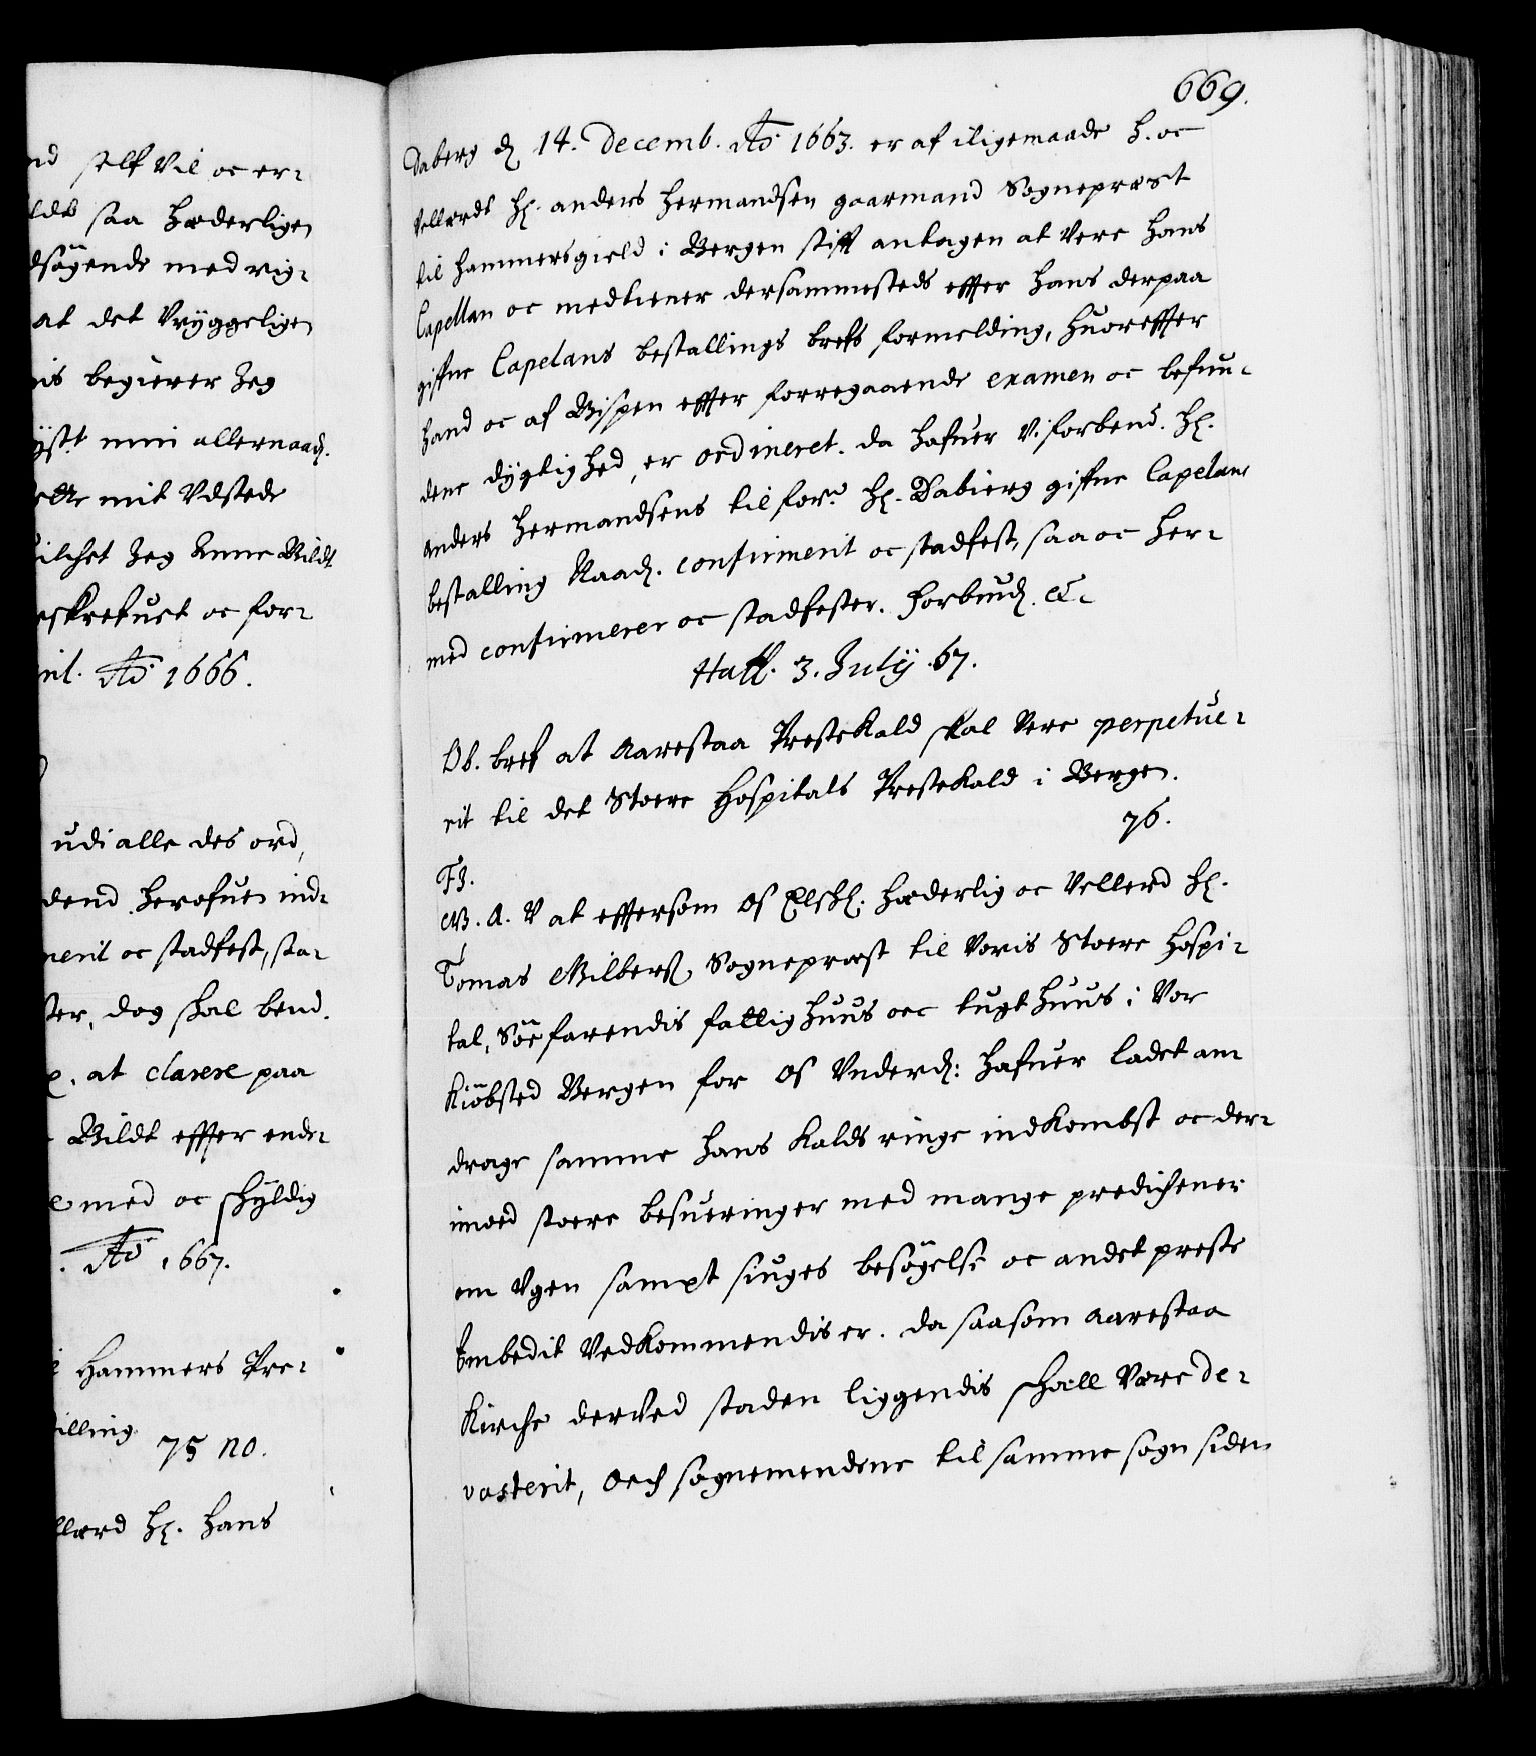 nd self vil oc er-
ldb saa hæderligen
dsøgende med rig-
at det Vryggeligen
nis begierer Jeg
yst. min allernaad.
mit Vdstede
uilchet Jeg Anne Bildt
eskrefuet oc for-
nit. Ao 1666.
udi alle des ord,
dend herofuen ind-
merit oc stadfest, sta-
ter, dog skal bend.
at clarere paa
Bildt effter ende-
med oc skyldig
Ao 1667.
Hammers Pre-
illing
75 no.
llerd Hr. Hans
669.
Daberg d. 14. Decemb. Ao 1663. er af iligemaade H. oc
Vellerde Hr. anders Hermandsen gaarmand Sogneprest
til Hammersgield i Bergen stifft antagen at Vere hans
Capellan oc medtiener dersammesteds effter hans derpaa
gifne Capelans bestallings brefs formelding, huoreffter
hand oc af Bispen effter forregaaende examen oc befun-
dene dygtighed, er ordineret. da hafuer V. forbend. Hr.
Anders Hermandsens til for. Hr. Dabierg gifne Capelans
bestalling Naad. confirmerit oc stadfest, saa oc her-
med confirmerer oc stadfester. Forbiud. etc.
Haff. 3. Julij .67.
Ob. bref at Aarestaa Prestekald skal Vere perpetue-
rit til det Stoere Hospitals Prestekald i Bergen.
76.
F3.
G. A. V at efftersom Os Elskl. Hæderlig oc Vellerd Hr.
Tomas Gilberts. Sogneprest til Voris Stoere Hospi-
tal, Søefarendis fattighuus oec tugthuus i Vor
Kiøbsted Bergen for Os Vnderd: hafuer ladet an-
drage samme hans Kalds ringe indkombst oc der-
imoed stoere besueringer med mange predichener
om Vgen sampt siuges besøgelse oc andet preste
Embedit Vedkommendis er. da saasom Aarestaa
Kirche derved staden liggendis skall Vere de-
vasterit, Och sognemendene til samme sogn siden